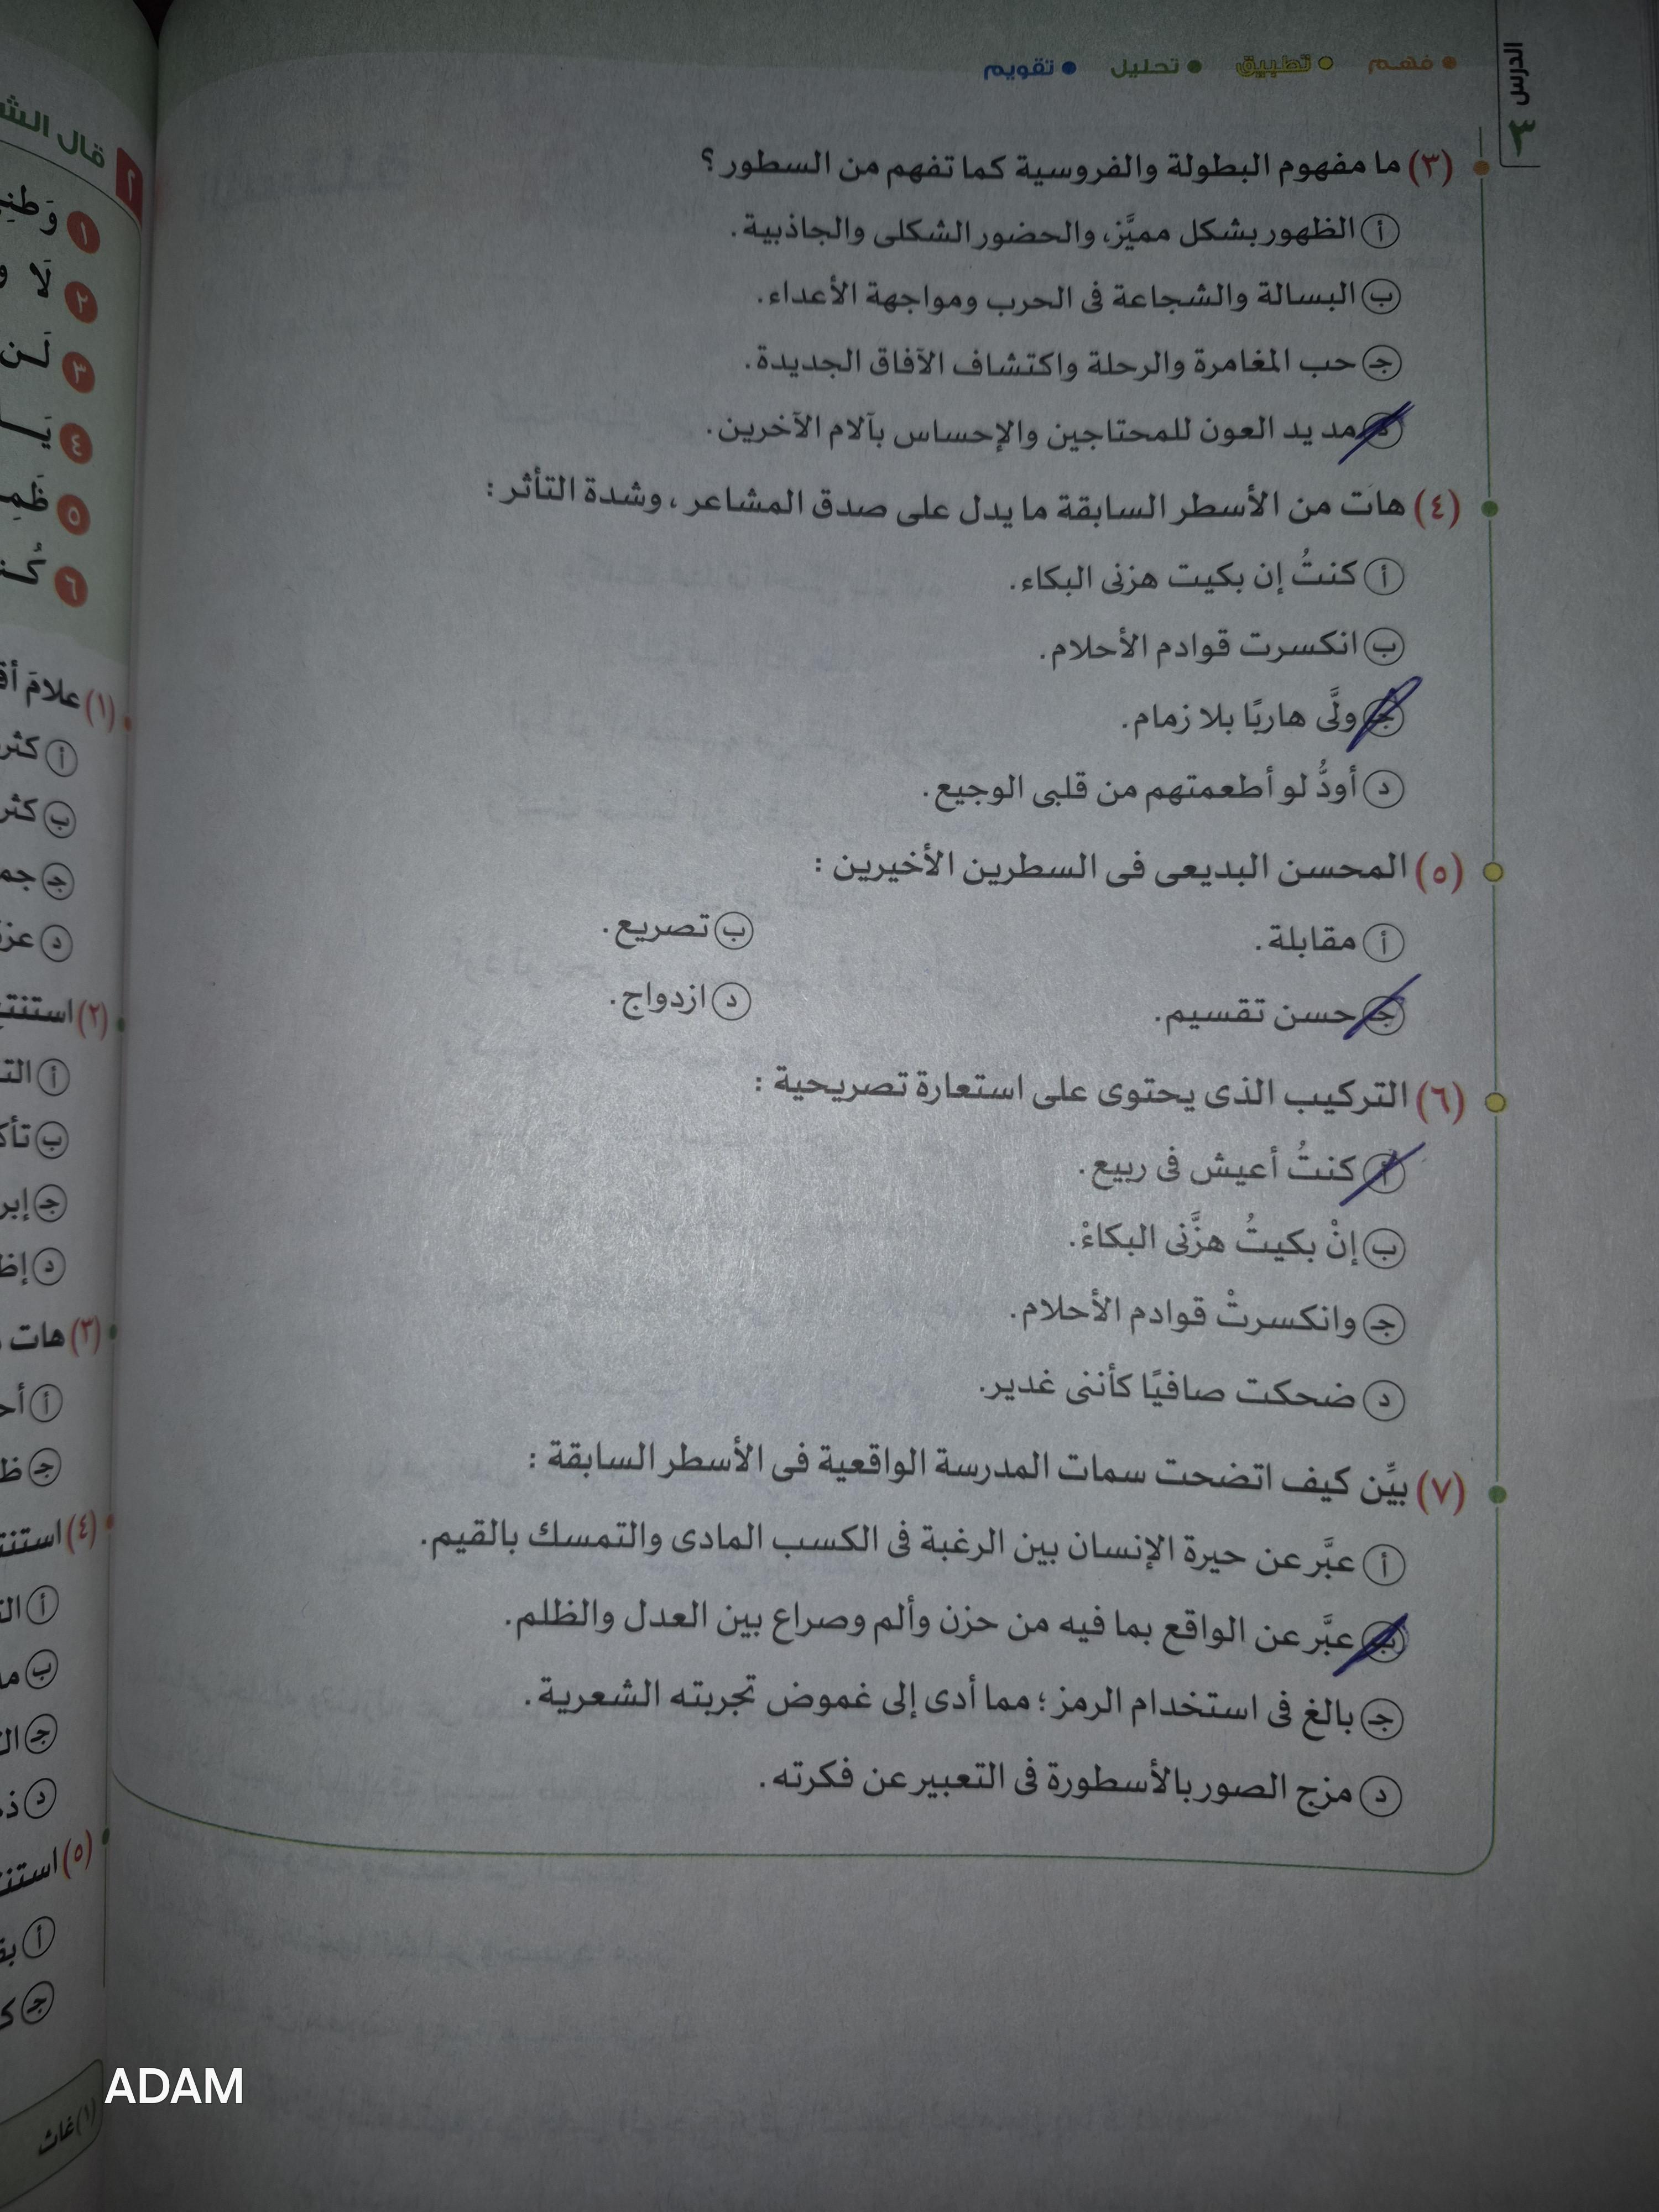 الدرس ٣
فهم تطبيق تحليل تقويم
(٣) ما مفهوم البطولة والفروسية كما تفهم من السطور؟
أ الظهور بشكل مميَّز، والحضور الشكلى والجاذبية.
ب البسالة والشجاعة فى الحرب ومواجهة الأعداء.
جـ حب المغامرة والرحلة واكتشاف الآفاق الجديدة.
د مد يد العون للمحتاجين والإحساس بآلام الآخرين.
(٤) هات من الأسطر السابقة ما يدل على صدق المشاعر، وشدة التأثر:
أ كنتُ إن بكيت هزنى البكاء.
ب انكسرت قوادم الأحلام.
جـ ولَّى هاربًا بلا زمام.
د أودُّ لو أطعمتهم من قلبى الوجيع.
(٥) المحسن البديعى فى السطرين الأخيرين:
أ مقابلة. ب تصريع.
جـ حسن تقسيم. د ازدواج.
(٦) التركيب الذى يحتوى على استعارة تصريحية:
أ كنتُ أعيش فى ربيع.
ب إنْ بكيتُ هزَّنى البكاءْ.
جـ وانكسرتْ قوادم الأحلام.
د ضحكت صافيًا كأننى غدير.
(٧) بيِّن كيف اتضحت سمات المدرسة الواقعية فى الأسطر السابقة:
أ عبَّر عن حيرة الإنسان بين الرغبة فى الكسب المادى والتمسك بالقيم.
ب عبَّر عن الواقع بما فيه من حزن وألم وصراع بين العدل والظلم.
جـ بالغ فى استخدام الرمز؛ مما أدى إلى غموض تجربته الشعرية.
د مزج الصور بالأسطورة فى التعبير عن فكرته.
٢ قال
١
٢ لَا
٣ لَـن
٤
٥
٦
(١) علامَ
أ
ب
جـ
د
(٢)
أ
ب
جـ
د
(٣) هات
أ
جـ
(٤)
أ
ب
جـ
د
(٥)
أ
جـ
(١)
ADAM